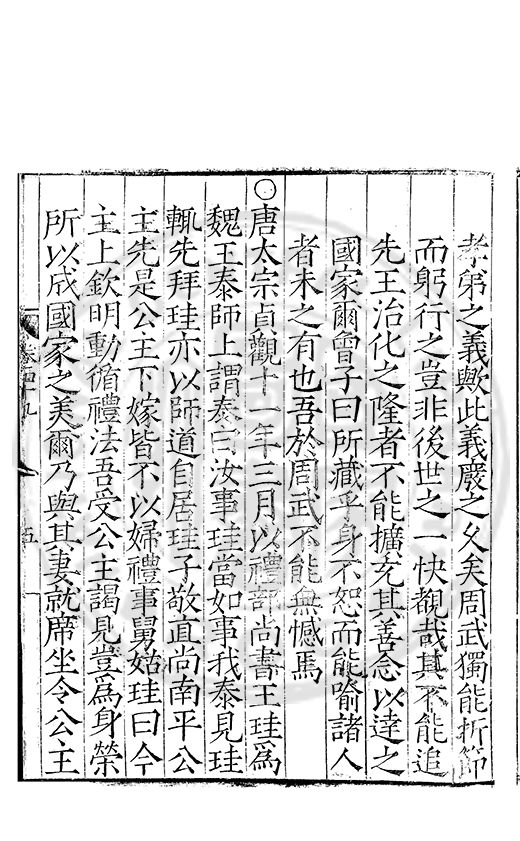 孝弟之義歟此義廢之久矣周武獨能折節
而躬行之豈非後世之一快覩哉其不能追
先王治化之隆者不能擴充其善念以達之
國家爾曾子曰所藏乎身不恕而能喻諸人
者未之有也吾於周武不能無憾焉
○唐太宗貞觀十一年三月以禮部尚書王珪為
魏王泰師上謂泰曰汝事珪當如事我泰見珪
輒先拜珪亦以師道自居珪子敬直尚南平公
主先是公主下嫁皆不以婦禮事舅姑珪曰今
主上欽明動循禮法吾受公主謁見豈為身榮
所以成國家之美爾乃與其妻就席坐令公主
卷四十九
五